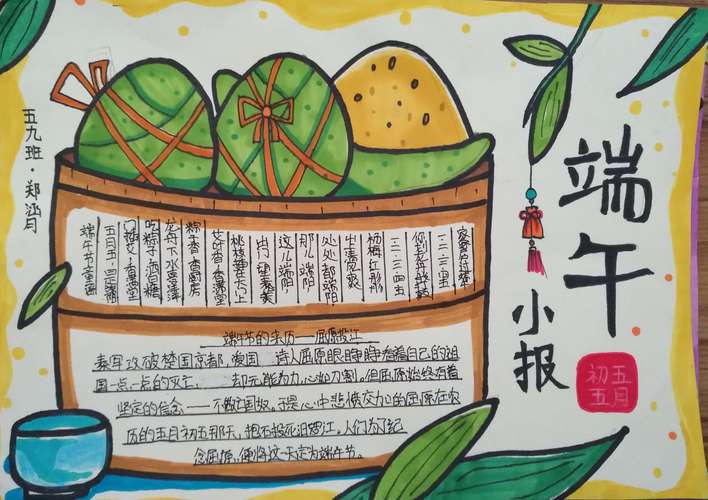 五九班·郑涵月
端午
小报
五月
初五
端午节童谣
五月五,是端阳
门插艾,香满堂
吃粽子,洒白糖
龙舟下水喜洋洋
粽子香 香厨房
艾叶香 香满堂
桃枝插在大门上
出门一望麦儿黄
这儿端阳,
那儿端阳
处处都端阳
杨梅红彤彤
端午节的来历——屈原投江
秦军攻破楚国京都,楚国 诗人屈原眼睁睁看着自己的祖
国一点一点的灭亡, 却无能为力心如刀割。但屈原始终有着
坚定的信念——不做亡国奴。于是心中悲愤交加的屈原在农
历的五月初五那天,抱石投死汨罗江,人们为了纪
念屈原,便将这一天定为端午节。